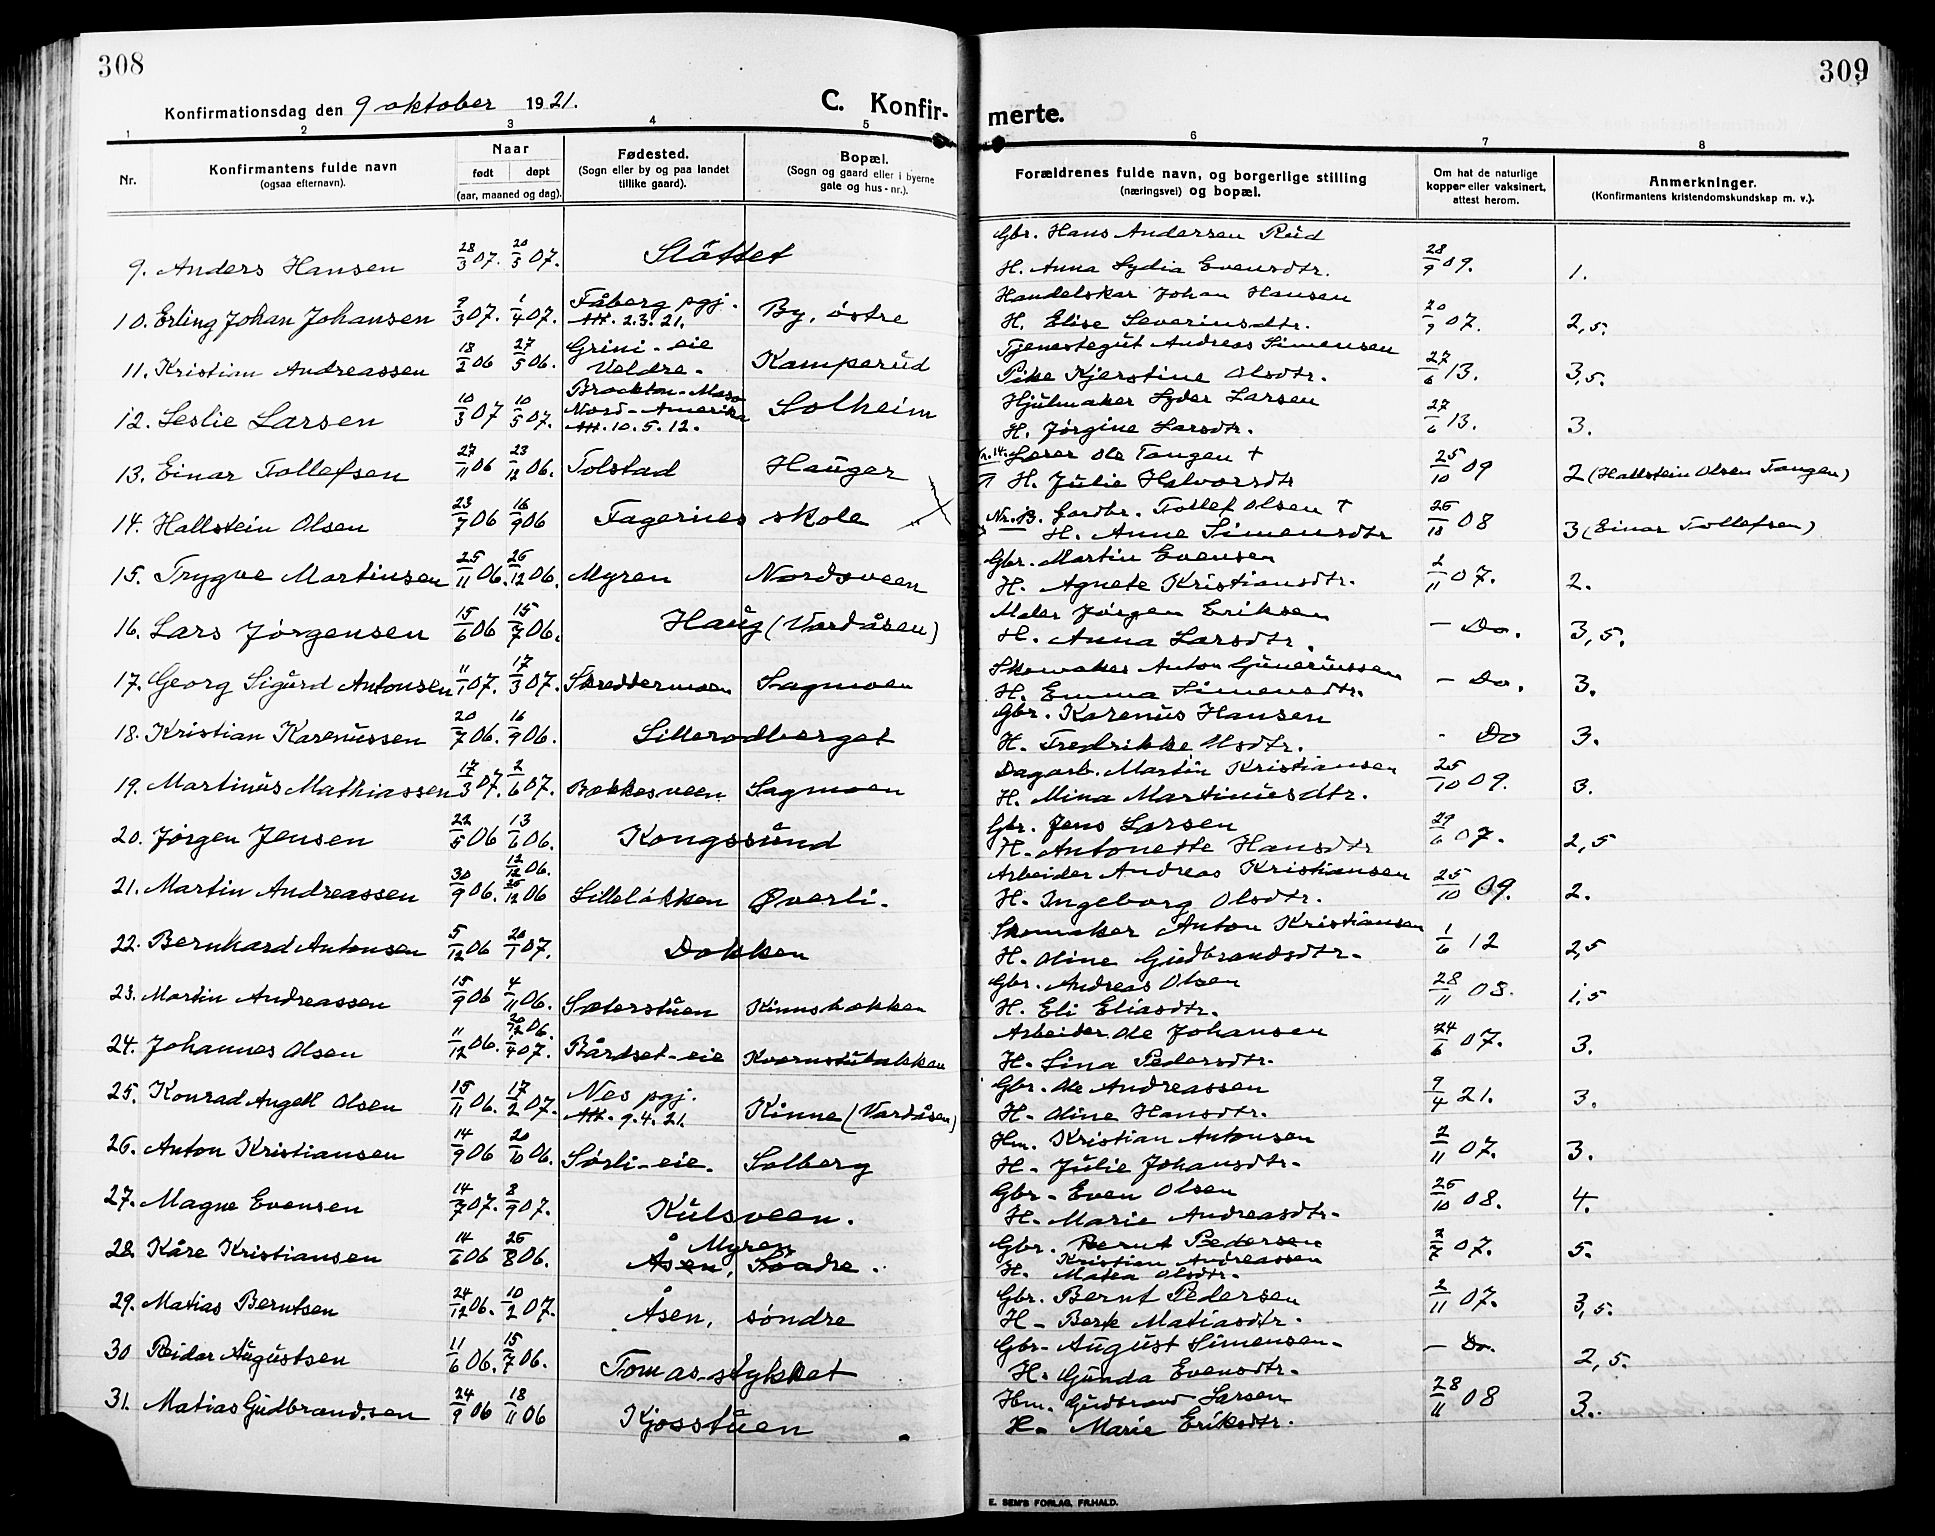 308
Konfirmationsdag den 9 oktober 1921.
C. Konfir-
1 2 3 4 5
Nr.
Konfirmantens fulde navn
(ogsaa efternavn).
Naar
født døpt
(aar, maaned og dag).
Fødested.
(Sogn eller by og paa landet
tillike gaard).
Bopæl.
(Sogn og gaard eller i byerne
gate og hus-nr.).
9. Anders Hansen 28/3 07. 20/5 07. Slåttet
10. Erling Johan Johansen 2/3 07. 1/4 07. Fåberg pgj. Att. 2.3.21. By, østre
11. Kristian Andreassen 18/2 06 27/5 06. Grini-eie Veldre. Kamperud
12. Leslie Larsen 10/3 07 10/5 07. Brockton-Mass Nord-Amerika Att. 10.5.12. Solheim
13. Einar Tollefsen 27/11 06 23/12 06. Tolstad Hauger
14. Hallstein Olsen 23/7 06 16/9 06 Fagernes skole
15. Trygve Martinsen 25/11 06. 26/12 06. Myren Nordsveen
16. Lars Jørgensen 15/6 06 15/7 06. Haug (Vardåsen)
17. Georg Sigurd Antonsen 11/1 07. 17/3 07. Skreddermoen Sagmoen
18. Kristian Karenussen 20/7 06. 16/9 06. Sillerodberget
19. Martinus Mathiassen 17/3 07. 2/6 07. Bakkesveen Sagmoen
20. Jørgen Jensen 22/5 06 13/6 06. Kongssund
21. Martin Andreassen 30/9 06. 12/12 06. 26/12 06 Lilleløkken Øverli.
22. Bernhard Antonsen 5/12 06 20/1 07. Dokken
23. Martin Andreassen 15/9 06 4/11 06. Sæterstuen Kinnsbakken
24. Johannes Olsen 11/12 06. 20/12 06. /4 07. Bårdset-eie Kvernstubakken
25. Konrad Angell Olsen 15/11 06. 17/2 07. Nes pgj. Att. 9.4.21. Kinne (Vardåsen)
26. Anton Kristiansen 14/9 06 20/10 06. Sørli-eie. Solberg
27. Magne Evensen 14/7 07. 8/9 07. Kulsveen.
28. Kåre Kristiansen 14/6 06 26/8 06. Myren
Åsen, søndre.
29. Matias Berntsen 24/12 06. 10/2 07. Åsen, søndre
30 Reidar Augustsen 11/6 06. 15/7 06. Tomas-stykket
31. Matias Gudbrandsen 24/9 06 18/11 06 Kjosstuen
309
merte.
6 7 8
Forældrenes fulde navn, og borgerlige stilling
(næringsvei) og bopæl.
Om hat de naturlige
kopper eller vaksinert,
attest herom.
Anmerkninger.
(Konfirmantens kristendomskundskap m. v.).
Gbr. Hans Andersen Rud
H. Anna Lydia Evensdtr. 28/9 09. 1.
Handelskar Johan Hansen
H. Elise Severinsdtr. 20/9 07. 2,5.
Tjenestegut Andreas Simensen
Pike Kjerstine Olsdtr. 27/6 13. 3,5.
Hjulmaker Syder Larsen
H. Jørgine Larsdtr. 27/6 13. 3.
Nr. 14. Lærer Ole Tangen †
H. Julie Halvorsdtr 25/10 09 2 (Hallstein Olsen Tangen)
Nr. 13. Gardbr. Tollef Olsen †
H. Anne Simensdtr 26/10 08 3 (Einar Tollefsen)
Gbr. Martin Evensen
H. Agnete Kristiansdtr. 2/11 07. 2.
Maler Jørgen Eriksen
H. Anna Larsdtr. - Do. 3,5.
Skomaker Anton Guneriussen
H. Emma Simensdtr. - Do. 3.
Gbr. Karenus Hansen
H. Fredrikke Olsdtr. - Do 3.
Dagarb. Martin Kristiansen
H. Mina Martinusdtr. 25/10 09. 3.
Gbr. Jens Larsen
H. Antonette Hansdtr 29/6 07. 2,5
Arbeider Andreas Kristiansen
H. Ingeborg Olsdtr. 25/10 09. 2.
Skomaker Anton Kristiansen
H. Oline Gudbrandsdtr. 1/6 12 2,5
Gbr. Andreas Olsen
H. Eli Eliasdtr. 28/11 08. 1,5
Arbeider Ole Johansen
H. Lina Pedersdtr. 24/6 07. 3.
Gbr. Ole Andreassen
H. Oline Hansdtr. 9/4 21. 3.
Hm. Kristian Antonsen
H. Julie Johansdtr. 2/11 07. 3.
Gbr. Even Olsen
H. Marie Andreasdtr. 26/10 08. 4.
Gbr. Bernt Pedersen
Kristian Andreassen
H. Matea Olsdtr. 2/7 07. 5.
Gbr. Bernt Pedersen
H. Berte Matiasdtr. 2/11 07. 3,5.
Gbr. August Simensen
H. Gunda Evensdtr. - Do. 2,5.
Hm. Gudbrand Larsen
H. Marie Eriksdtr. 28/11 08 3.
E. SEM'S FORLAG, FR.HALD.